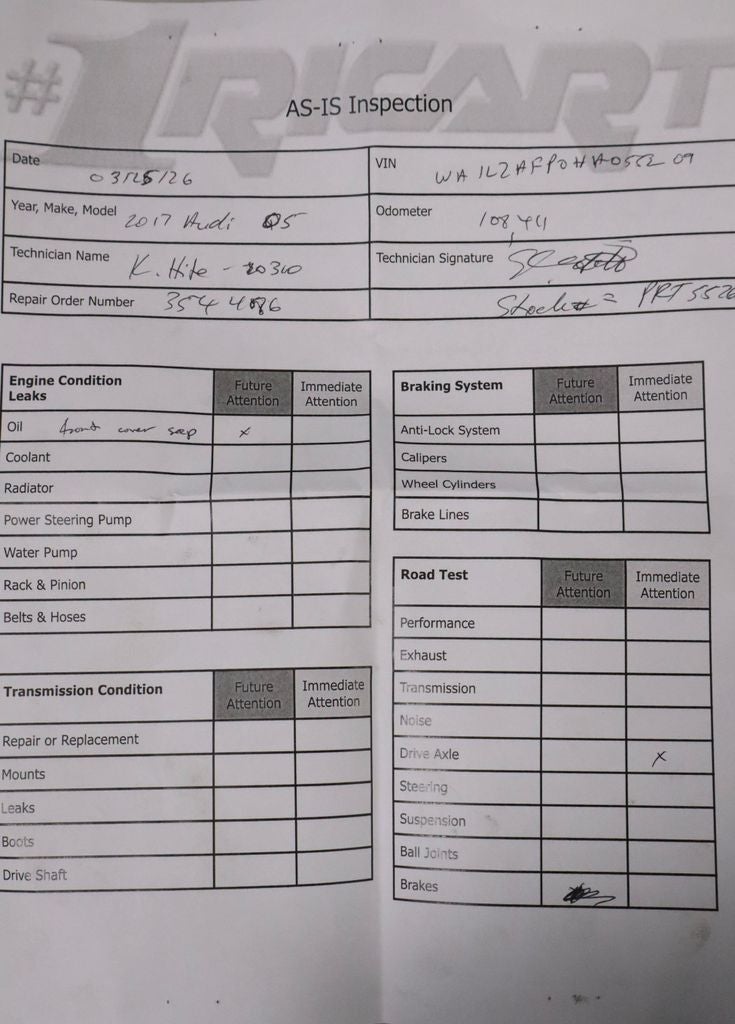 #1 RICART
AS-IS Inspection
Date 03/25/26
VIN WA1L2AFP0HA055209
Year, Make, Model 2017 Audi Q5
Odometer 108411
Technician Name K. Hite - 20310
Technician Signature
Repair Order Number 3544086
Stock# = PRT5526
Engine Condition Leaks Future Attention Immediate Attention
Oil front cover seep x
Coolant
Radiator
Power Steering Pump
Water Pump
Rack & Pinion
Belts & Hoses
Transmission Condition Future Attention Immediate Attention
Repair or Replacement
Mounts
Leaks
Boots
Drive Shaft
Braking System Future Attention Immediate Attention
Anti-Lock System
Calipers
Wheel Cylinders
Brake Lines
Road Test Future Attention Immediate Attention
Performance
Exhaust
Transmission
Noise
Drive Axle x
Steering
Suspension
Ball Joints
Brakes